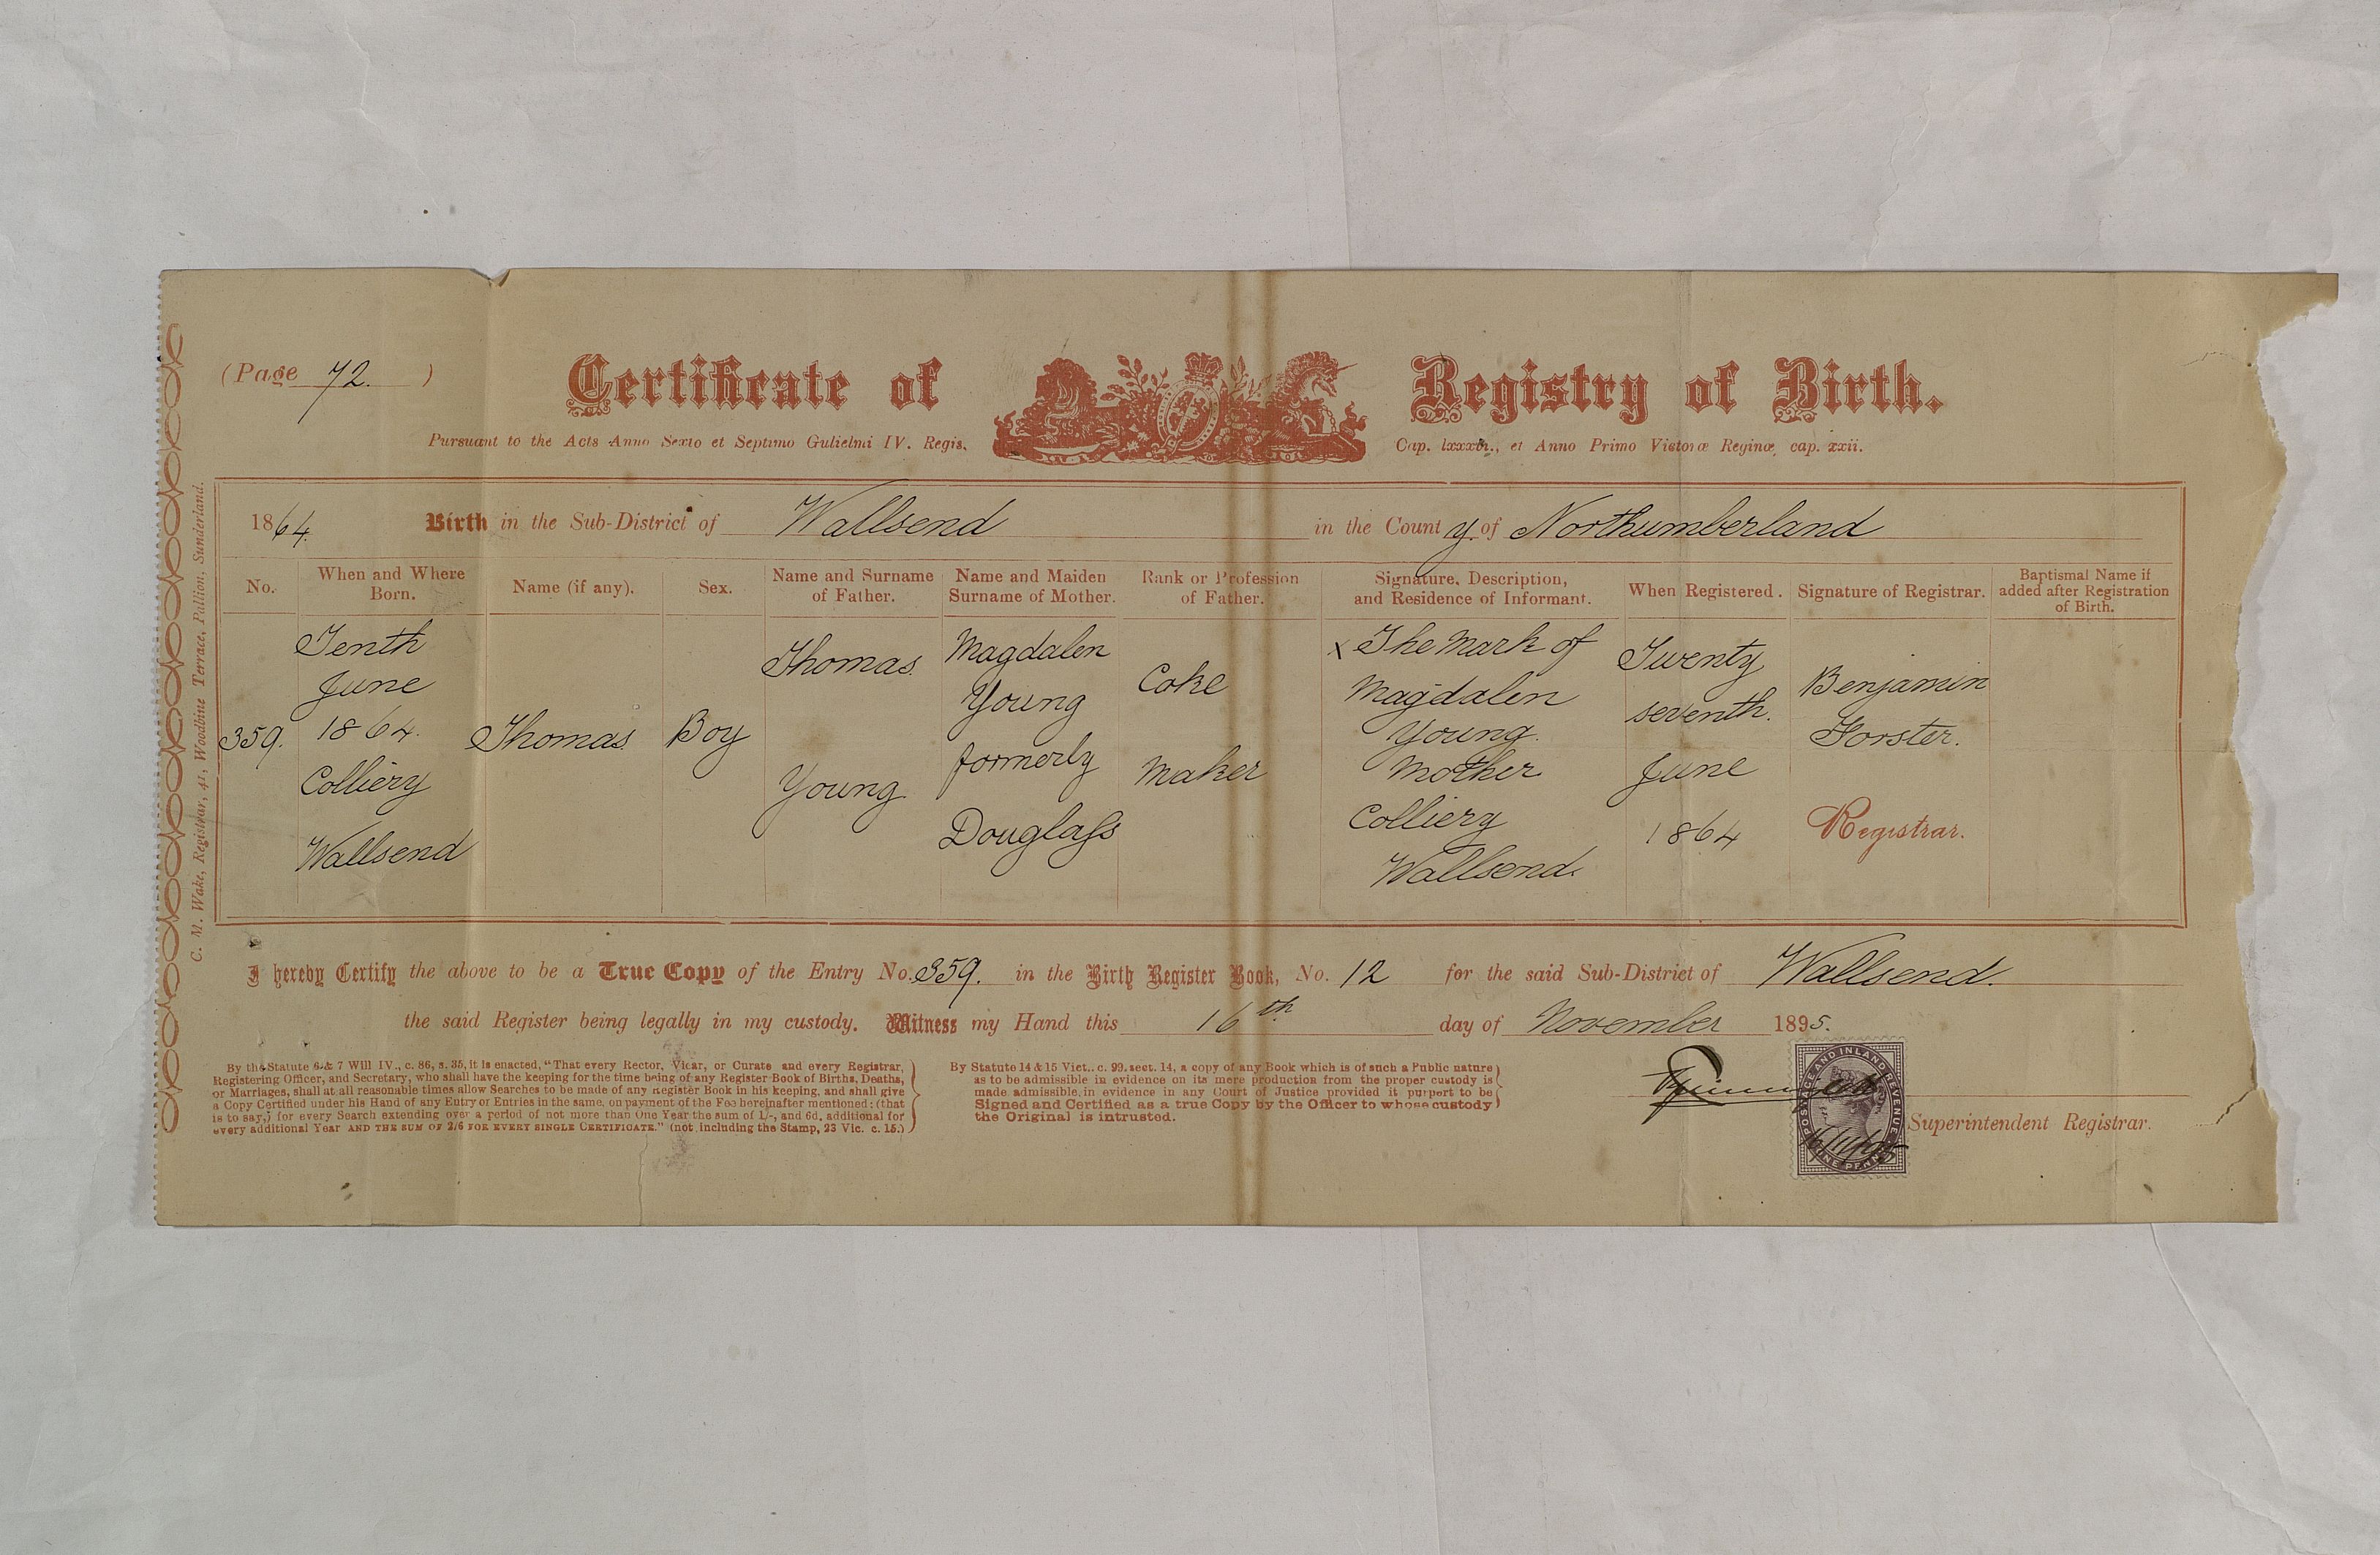 (Page 72. )
Certificate of Registry of Birth.
Pursuant to the Acts Anno Sexto et Septimo Gulielmi IV. Regis, Cap. lxxxvi., et Anno Primo Victoriæ Reginæ, cap. xxii.
1864. Birth in the Sub-District of Wallsend in the County of Northumberland
No.
When and Where
Born.
Name (if any).
Sex.
Name and Surname
of Father.
Name and Maiden
Surname of Mother.
Rank or Profession
of Father.
Signature, Description,
and Residence of Informant.
When Registered.
Signature of Registrar.
Baptismal Name if
added after Registration
of Birth.
359.
Tenth
June
1864.
Colliery
Wallsend
Thomas
Boy
Thomas
Young
Magdalen
Young
formerly
Douglass
Coke
Maker
x The Mark of
Magdalen
Young.
Mother
Colliery
Wallsend.
Twenty
seventh.
June
1864
Benjamin
Forster.
Registrar.
I hereby Certify the above to be a True Copy of the Entry No. 359. in the Birth Register Book, No. 12 for the said Sub-District of Wallsend.
the said Register being legally in my custody. Witness my Hand this 16th day of November 1895.
By the Statute 6 & 7 Will IV., c. 86, s. 35, it is enacted, "That every Rector, Vicar, or Curate and every Registrar,
Registering Officer, and Secretary, who shall have the keeping for the time being of any Register Book of Births, Deaths,
or Marriages, shall at all reasonable times allow Searches to be made of any Register Book in his keeping, and shall give
a Copy Certified under his Hand of any Entry or Entries in the same, on payment of the Fee hereinafter mentioned; (that
is to say,) for every Search extending over a period of not more than One Year the sum of 1/-, and 6d. additional for
every additional Year AND THE SUM OF 2/6 FOR EVERY SINGLE CERTIFICATE." (not including the Stamp, 23 Vic. c. 15.)
By Statute 14 & 15 Vict., c. 99. sect. 14, a copy of any Book which is of such a Public nature
as to be admissible in evidence on its mere production from the proper custody is
made admissible in evidence in any Court of Justice provided it purport to be
Signed and Certified as a true Copy by the Officer to whose custody
the Original is intrusted.
POSTAGE AND INLAND REVENUE
ONE PENNY
16/11/95
Superintendent Registrar.
C. M. Wake, Registrar, 41, Woodbine Terrace, Pallion, Sunderland.